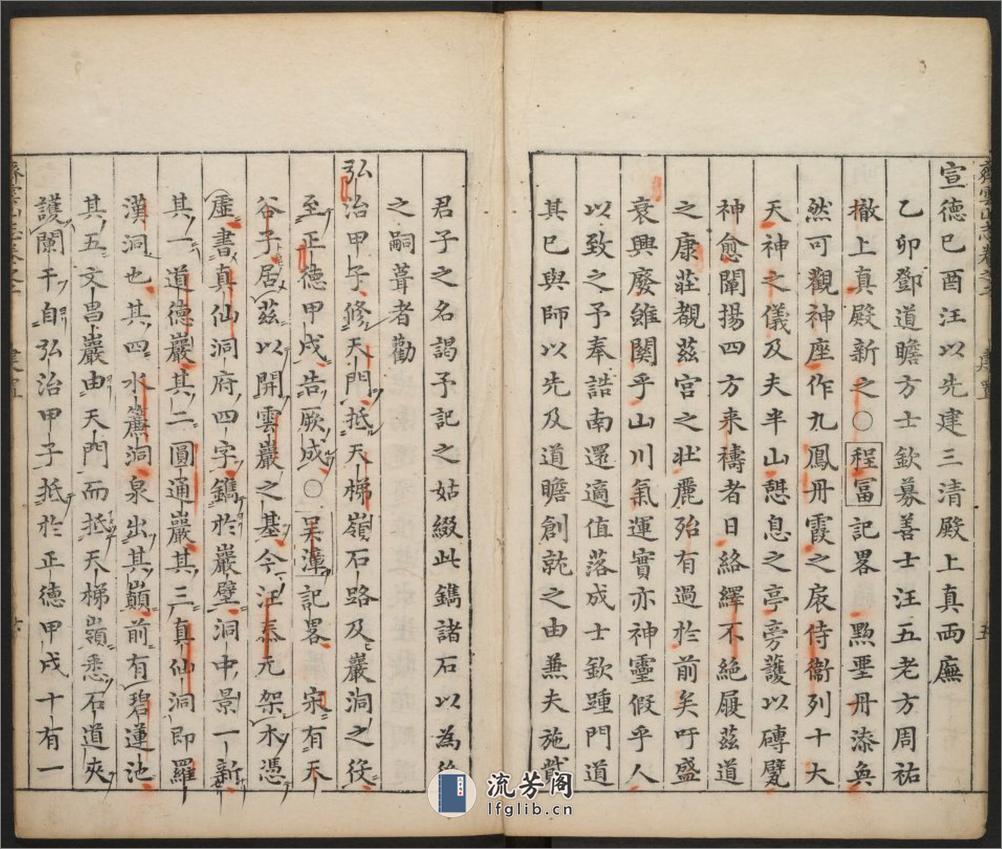 宣德己酉汪以先建三清殿上真兩廡
乙卯鄧道瞻方士欽募善士汪五老方周祐
撤上真殿新之○程富記畧黝堊丹漆奐
然可觀神座作九鳳丹霞之扆侍衛列十大
天神之儀及夫半山憇息之亭旁護以磚甓
神愈闡揚四方来禱者日絡繹不絶履兹道
之康莊覩兹宮之壮麗殆有過於前矣吁盛
衰興廢雖関乎山川氣運實亦神靈假乎人
以致之予奉誥南還適值落成士欽踵門道
其已與師以先及道瞻創就之由兼夫施貲
君子之名謁予記之姑綴此鐫諸石以為後
之嗣葺者勸
弘治甲子修天門抵天梯嶺石路及巖洞之役
至正德甲戌告厥成○吴漳記畧宋有天
谷子居兹以開雲巖之基今汪泰元架木憑
虛書真仙洞府四字鐫於巖壁洞中景一新
其一道德巖其二圓通巖其三真仙洞即羅
漢洞也其四水簾洞泉出其巔前有碧蓮池
其五文昌巖由天門而抵天梯嶺悉石道夾
護闌干自弘治甲子抵於正德甲戌十有一
齊雲山志卷之
建置
流芳阁
lfglib.cn